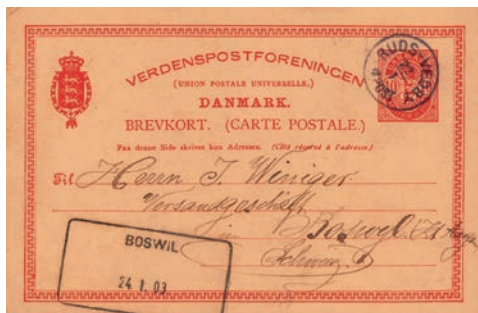 VERDENSPOSTFORENINGEN
(UNION POSTALE UNIVERSELLE.)
DANMARK.
BREVKORT. (CARTE POSTALE.)
Paa denne Side skrives kun Adressen. (Côté réservé à l'adresse.)
RUDS-VEDBY
Til Herrn J. Winiger
Versandgeschäft
in Boswyl
Schweiz
BOSWIL
24 1. 03